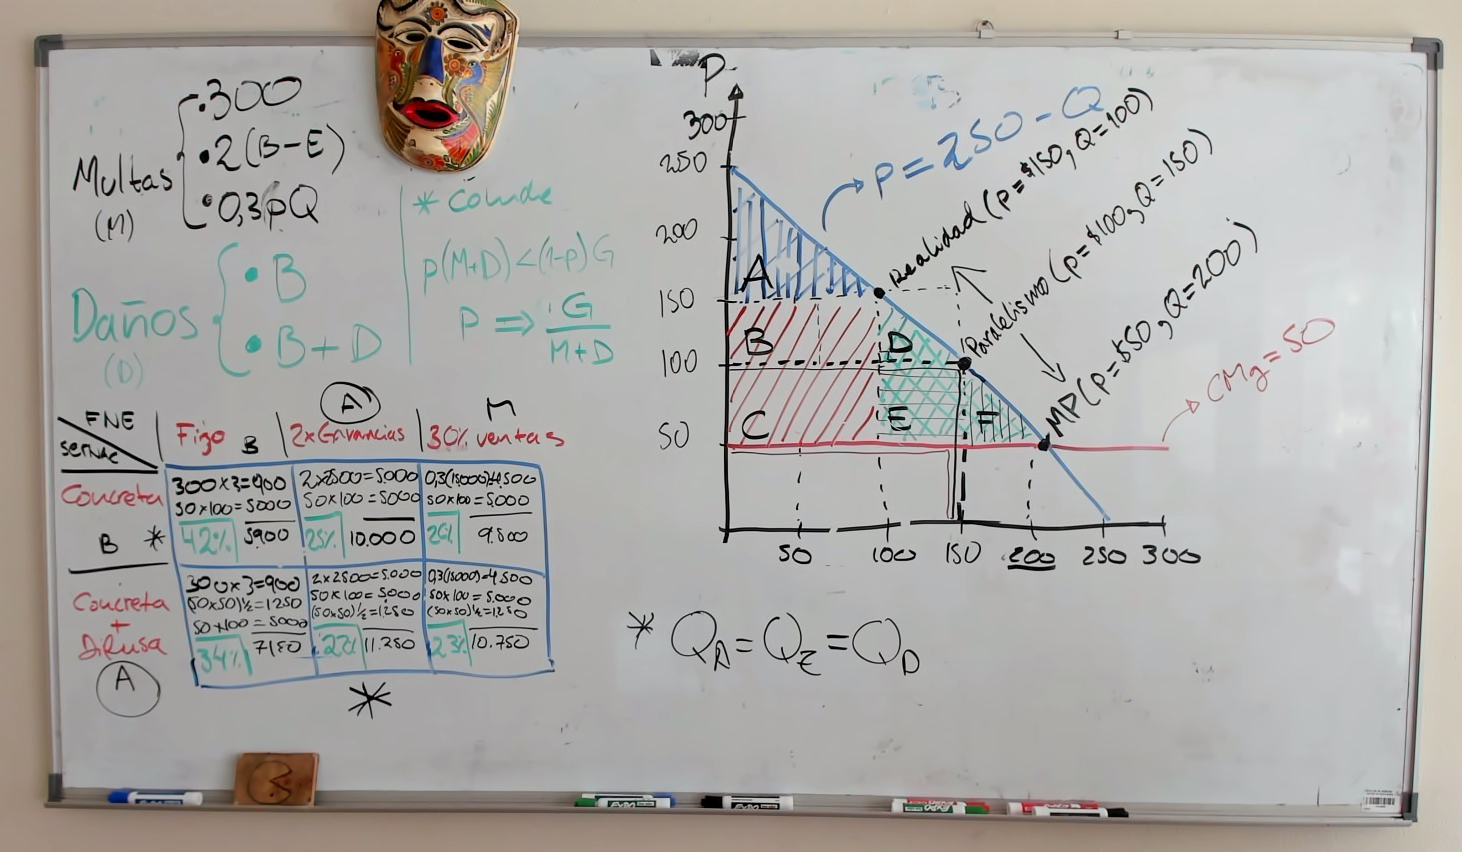 Multas
(M)
• 300
• 2(B-E)
• 0,3pQ
Daños
(D)
• B
• B+D
* Colude
p(M+D) < (1-p)G
P ⇒ G
M+D
FNE
SERNAC
Fijo
B
A
2xGanancias
M
30% ventas
Concreta
B *
300x3=900
50x100=5000
42%
5900
2x2500=5000
50x100=5000
25%
10.000
0,3(15000)=4500
50x100=5,000
26%
9.500
Concreta
+
Difusa
A
300x3=900
(50x50)½=1250
50x100=5000
34%
7150
2x2500=5.000
50x100=5000
(50x50)½=1250
22%
11.250
0,3(15000)=4500
50x100=5.000
(50x50)½=1250
23%
10.750
*
P
300
250
200
150
100
50
p=250-Q
Realidad (p=$150, Q=100)
Paralelismo (p=$100, Q=150)
MP (P=$50, Q=200)
CMg=50
A
B
C
D
E
F
50 100 150 200 250 300
* Q_A = Q_E = Q_D